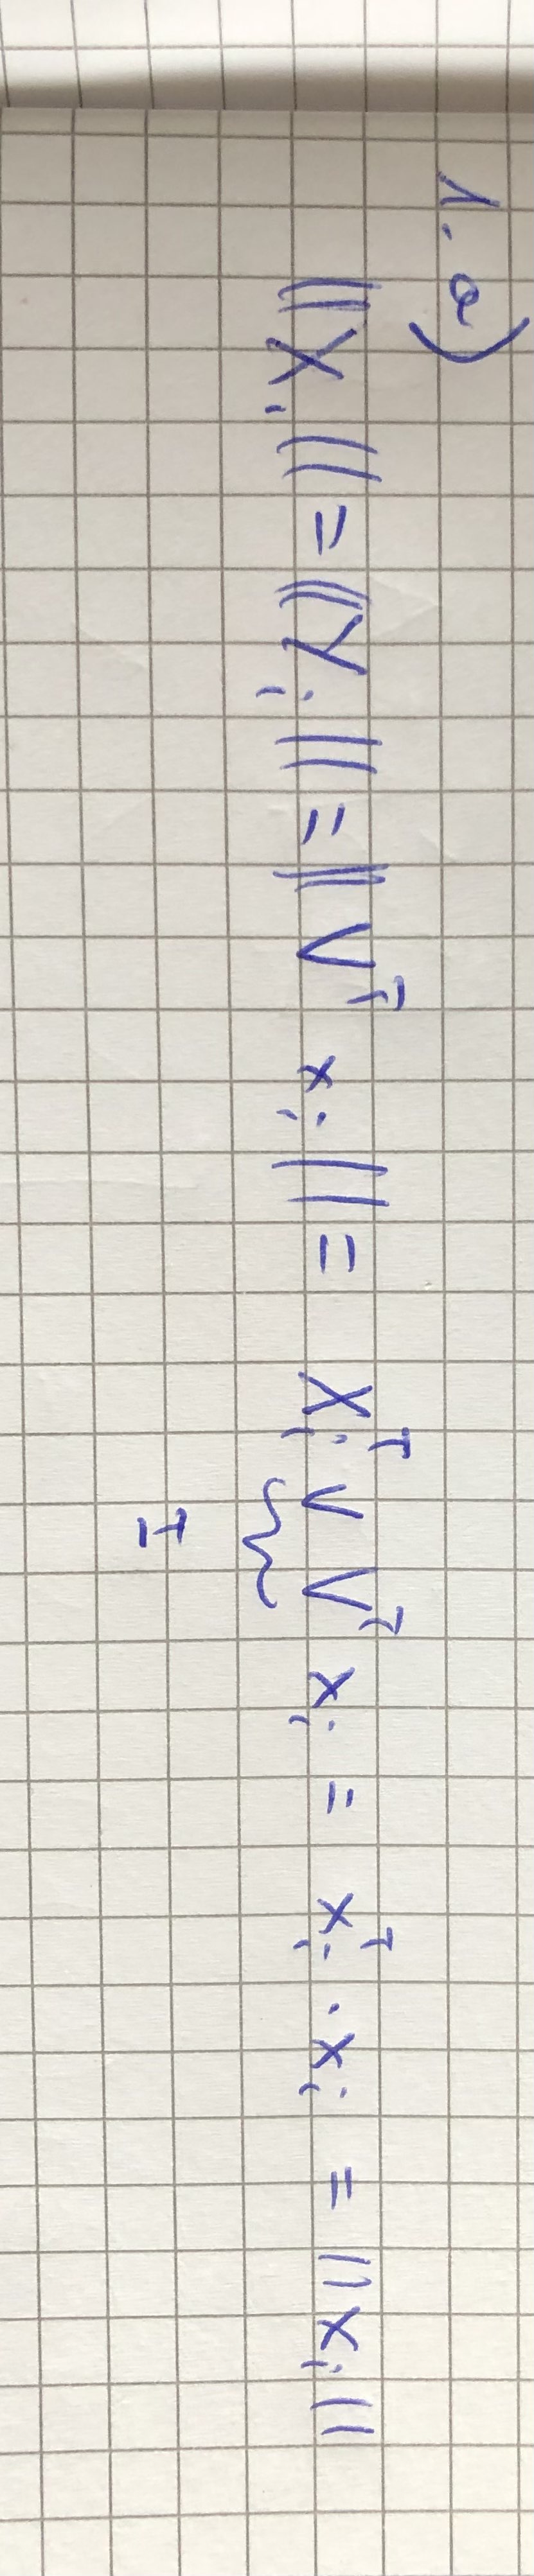 1. a)
||X_i|| = ||Y_i|| = ||V^T x_i|| = X_i^T V V^T x_i = x_i^T · x_i = ||x_i||
I